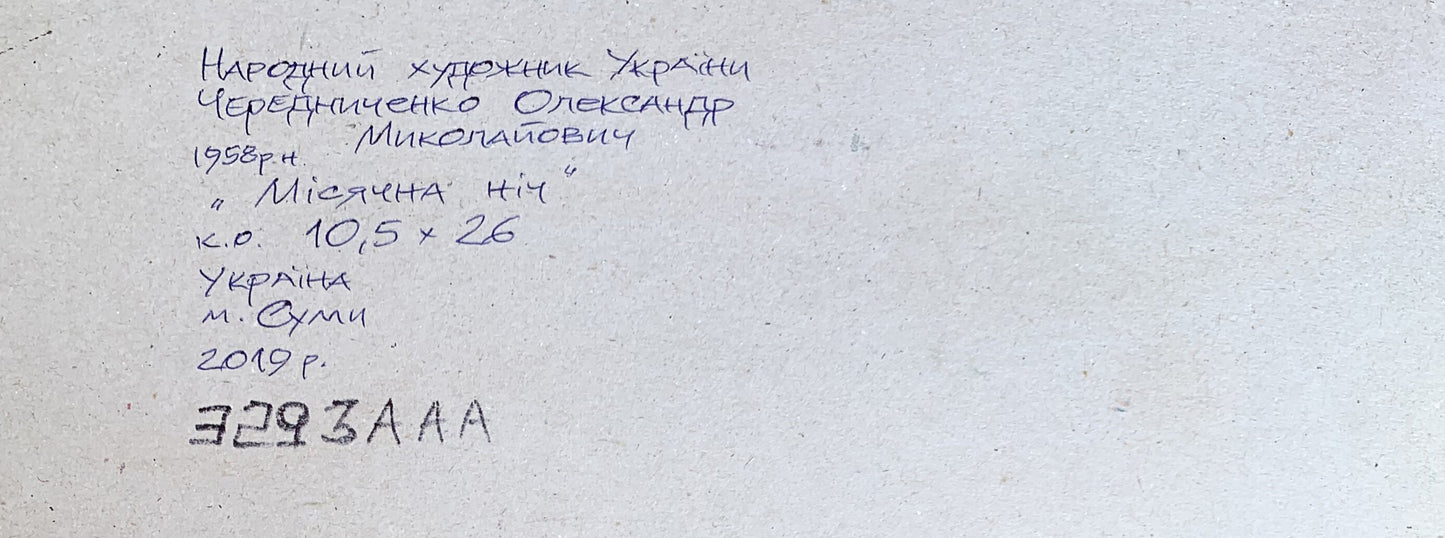 Народний художник України
Чередниченко Олександр
Миколайович
1958р.н.
„ Місячна ніч “
к.о. 10,5 х 26
Україна
м. Суми
2019 р.
3293ААА